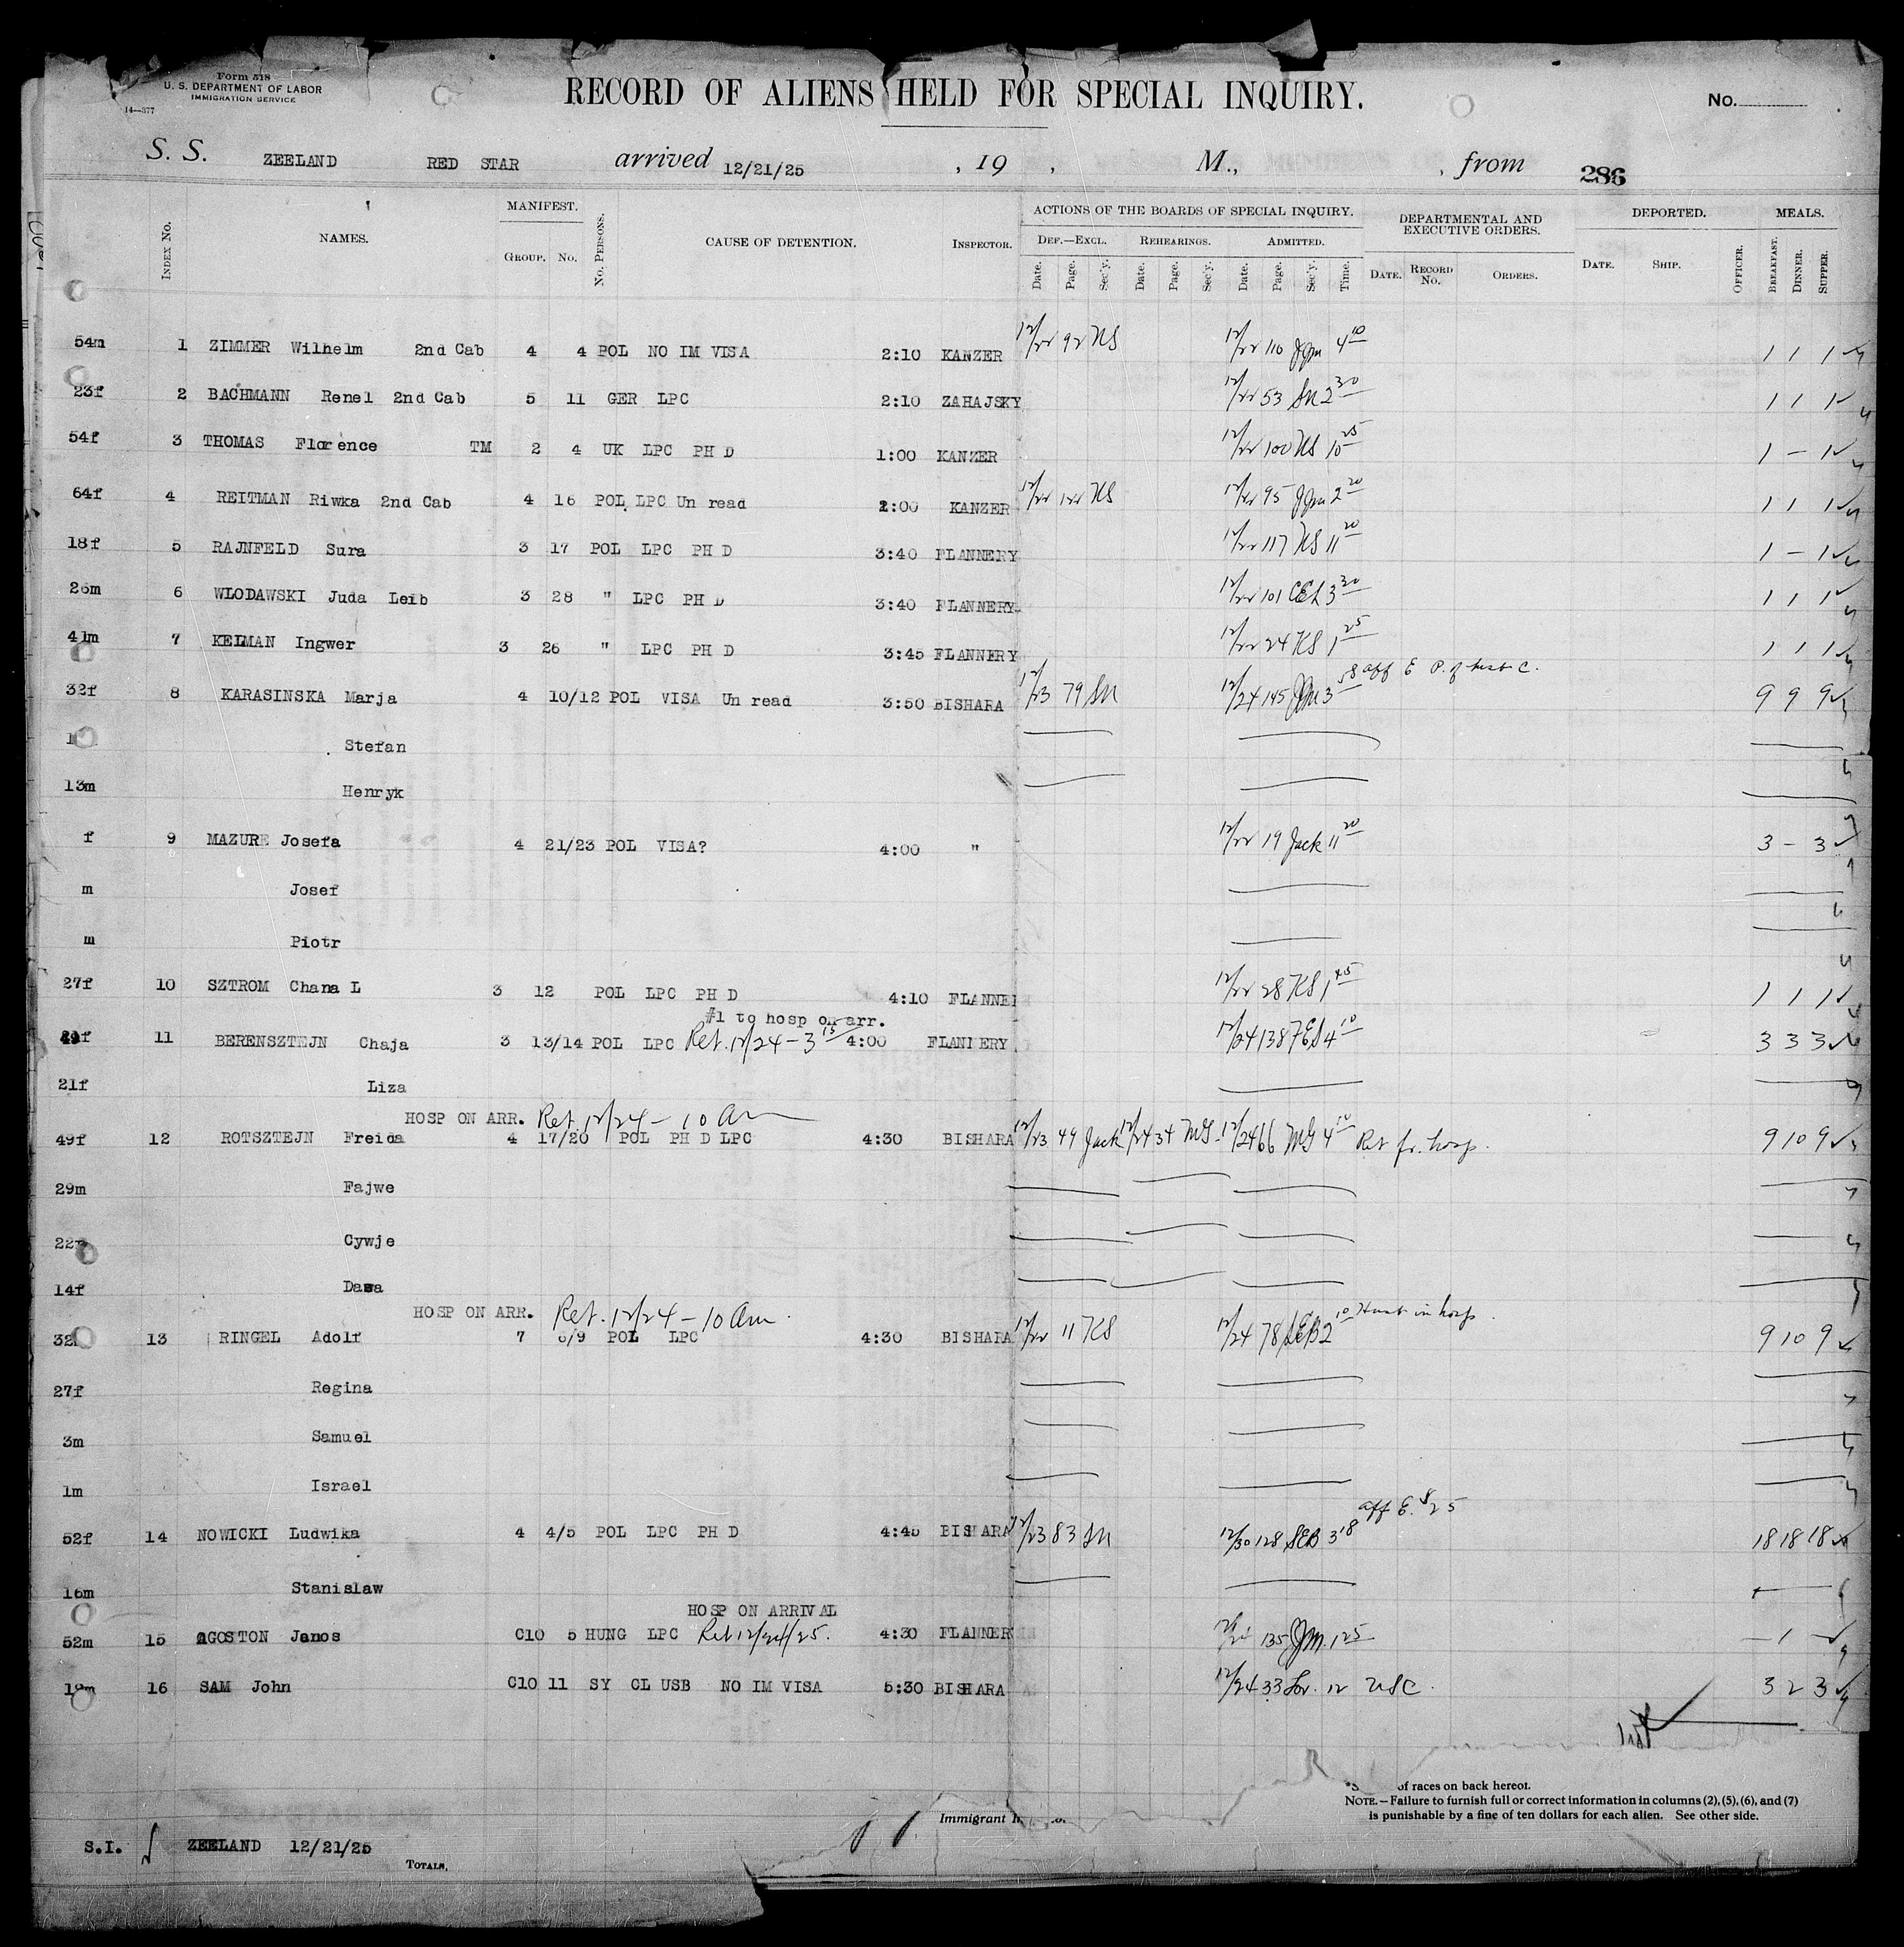 Form 518
U. S. DEPARTMENT OF LABOR
IMMIGRATION SERVICE
14—377
RECORD OF ALIENS HELD FOR SPECIAL INQUIRY.
No.
S. S. ZEELAND RED STAR arrived 12/21/25 , 19 , M., , from 286
INDEX No. NAMES. MANIFEST. GROUP. No. No. PERSONS. CAUSE OF DETENTION. INSPECTOR. ACTIONS OF THE BOARDS OF SPECIAL INQUIRY. DEF.—EXCL. Date. Page. Sec'y. REHEARINGS. Date. Page. Sec'y. ADMITTED. Date. Page. Sec'y. Time. DEPARTMENTAL AND EXECUTIVE ORDERS. DATE. RECORD No. ORDERS. DEPORTED. DATE. SHIP. OFFICER. MEALS. BREAKFAST. DINNER. SUPPER.
54m 1 ZIMMER Wilhelm 2nd Cab 4 4 POL NO IM VISA 2:10 KANZER 12/22 92 KS 12/22 110 4 10 1 1 1
23f 2 BACHMANN Renel 2nd Cab 5 11 GER LPC 2:10 ZAHAJSKY 12/22 53 2 30 1 1 1
54f 3 THOMAS Florence TM 2 4 UK LPC PH D 1:00 KANZER 12/22 100 KS 10 25 1 — 1
64f 4 REITMAN Riwka 2nd Cab 4 16 POL LPC Un read 2:00 KANZER 12/22 122 KS 12/22 95 2 20 1 1 1
18f 5 RAJNFELD Sura 3 17 POL LPC PH D 3:40 FLANNERY 12/22 117 KS 11 20 1 — 1
26m 6 WLODAWSKI Juda Leib 3 28 " LPC PH D 3:40 FLANNERY 12/22 101 3 30 1 1 1
41m 7 KELMAN Ingwer 3 26 " LPC PH D 3:45 FLANNERY 12/22 24 KS 1 25 1 1 1
32f 8 KARASINSKA Marja 4 10/12 POL VISA Un read 3:50 BISHARA 12/23 79 12/24 145 3 58 aff E P. of 9 9 9
Stefan
13m Henryk
f 9 MAZURE Josefa 4 21/23 POL VISA? 4:00 " 12/22 19 Jack 11 20 3 — 3
m Josef
m Piotr
27f 10 SZTROM Chana L 3 12 POL LPC PH D 4:10 FLANNE 12/22 28 KS 1 45 1 1 1
#1 to hosp on arr.
11 BERENSZTEJN Chaja 3 13/14 POL LPC Ret. 12/24 – 3 15 4:00 FLANNERY 12/24 138 4 10 3 3 3
21f Liza
HOSP ON ARR. Ret. 12/24 – 10 am
49f 12 ROTSZTEJN Freida 4 17/20 POL PH D LPC 4:30 BISHARA 12/23 49 Jack 12/24 34 MG 12/24 66 MG 4 10 Ret fr. hosp. 9 10 9
29m Fajwe
22 Cywje
14f Dawa
HOSP ON ARR. Ret. 12/24 – 10 am.
32 13 RINGEL Adolf 7 6/9 POL LPC 4:30 BISHARA 12/22 11 KS 12/24 78 SEB 2 10 in hosp. 9 10 9
27f Regina
3m Samuel
1m Israel
52f 14 NOWICKI Ludwika 4 4/5 POL LPC PH D 4:45 BISHARA 12/23 83 12/30 128 SEB 3 18 aff E. $25 18 18 18
16m Stanislaw
HOSP ON ARRIVAL
52m 15 AGOSTON Janos C10 5 HUNG LPC Ret 12/24/25. 4:30 FLANNER 135 1 25 — 1 —
16 SAM John C10 11 SY CL USB NO IM VISA 5:30 BISHARA 12/24 33 12 USC. 3 2 3
of races on back hereof.
NOTE.—Failure to furnish full or correct information in columns (2), (5), (6), and (7)
is punishable by a fine of ten dollars for each alien. See other side.
Immigrant
S.I. ZEELAND 12/21/25
TOTALS.